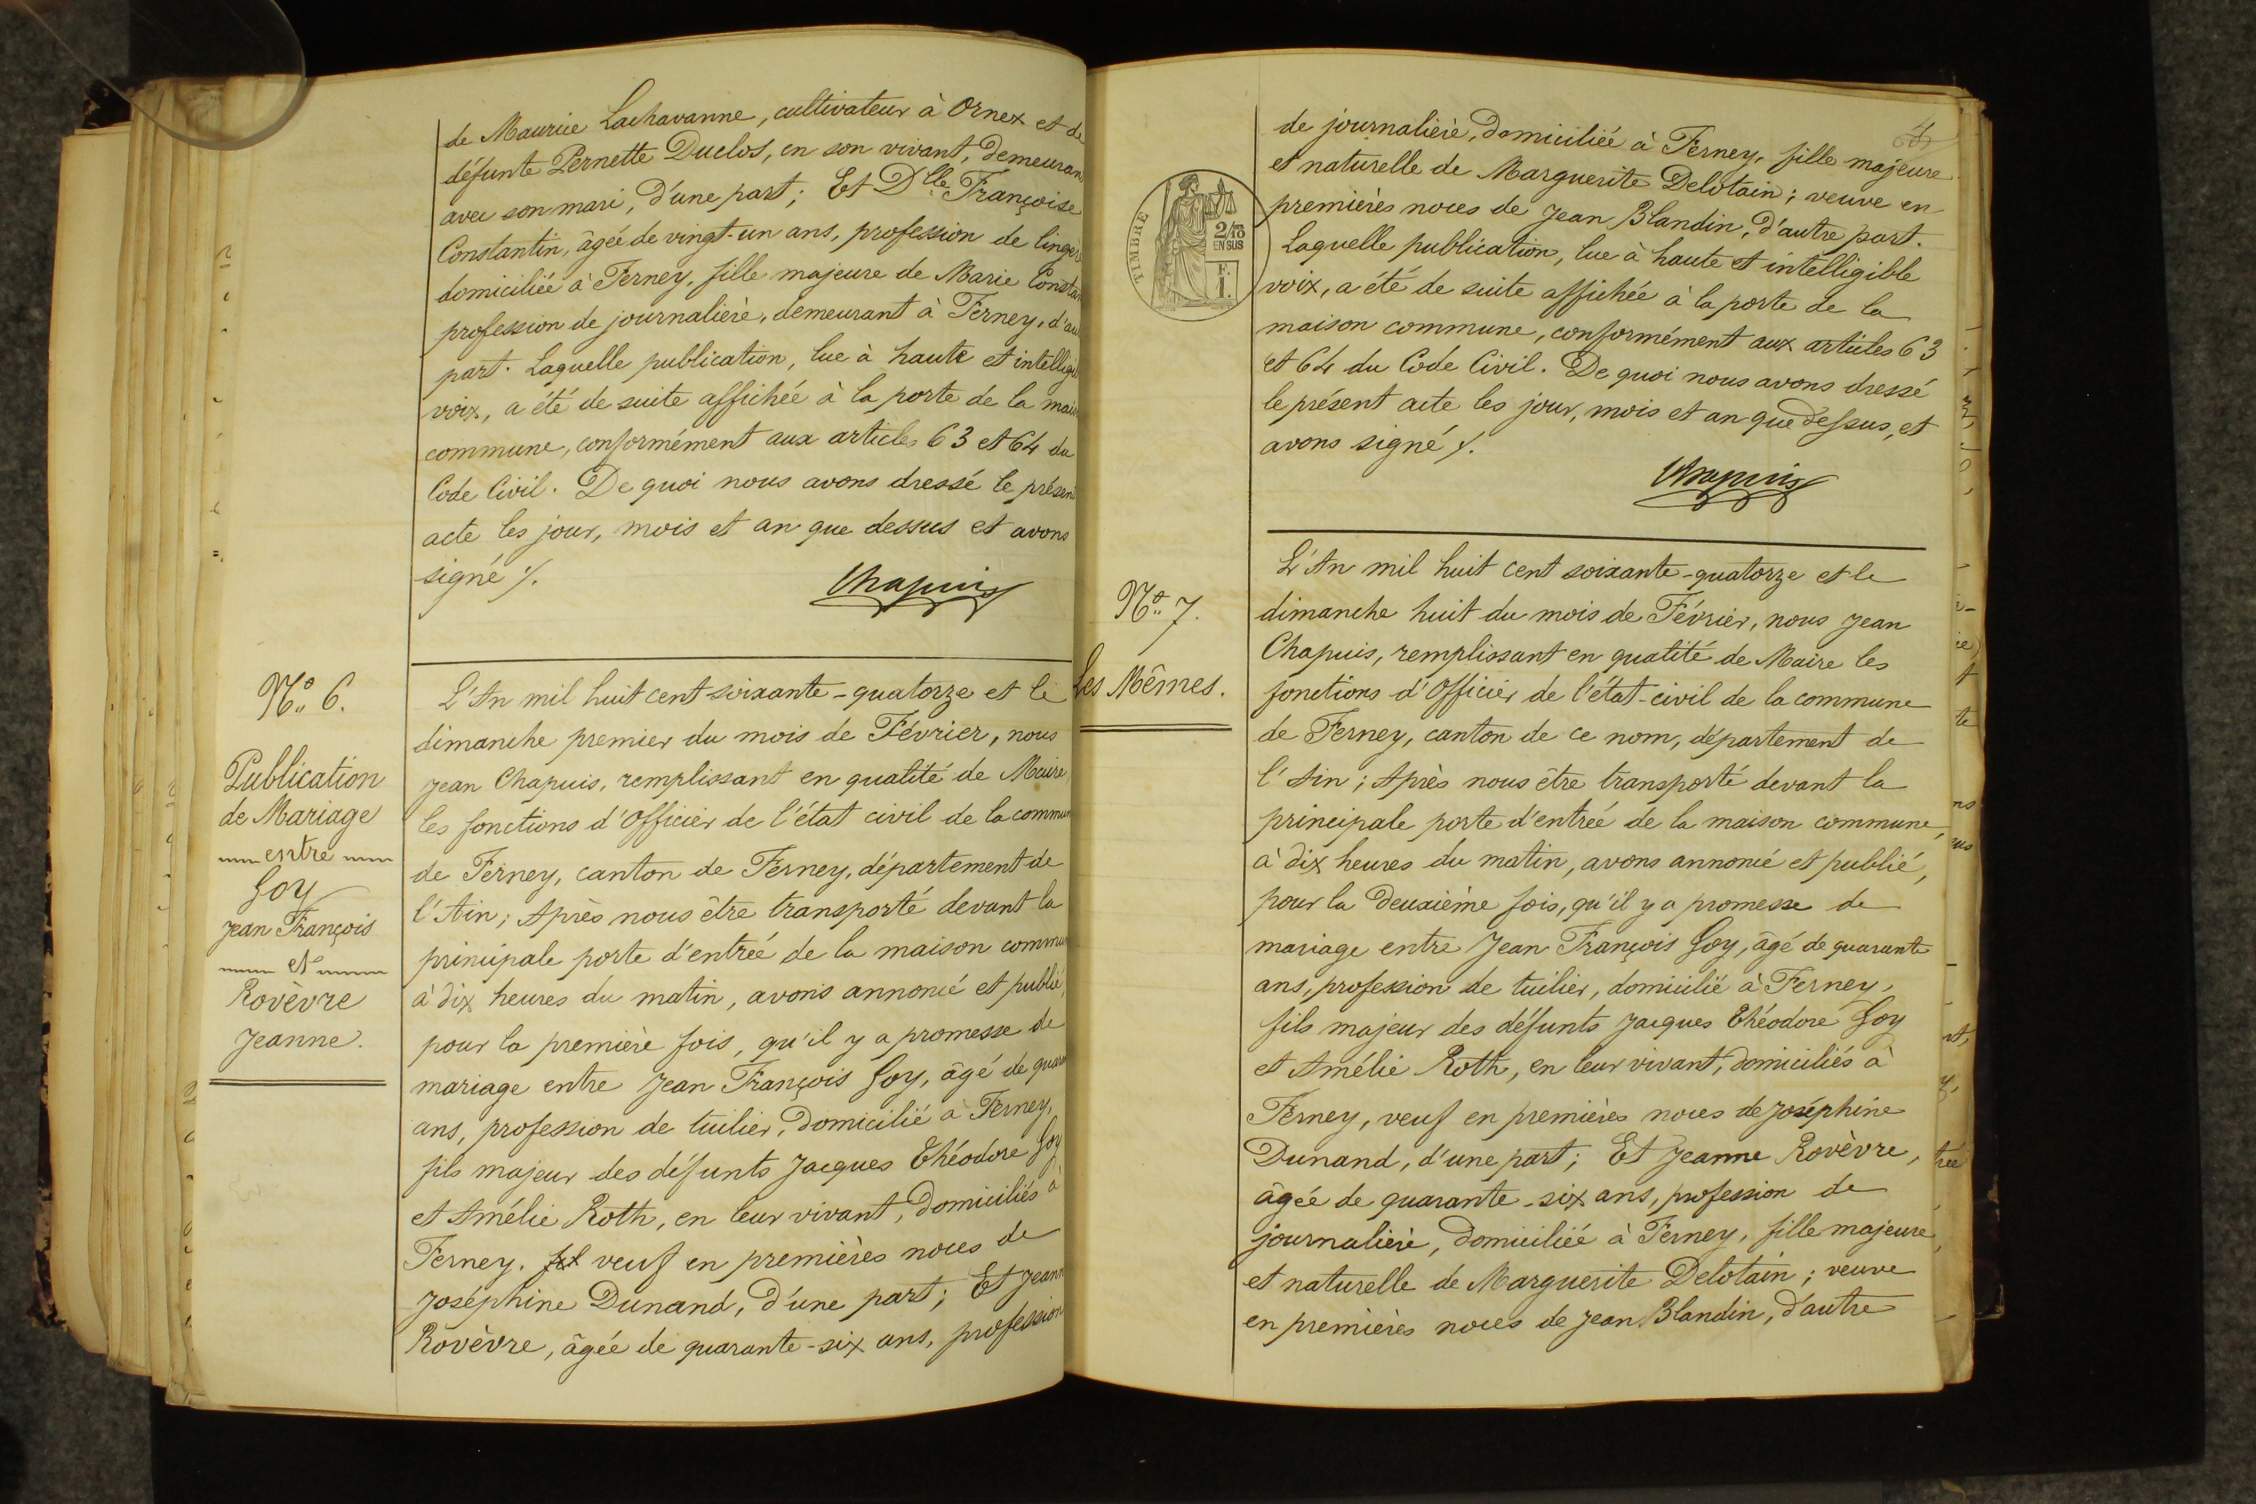 de Maurice Lachavanne, cultivateur à Ornex et de
défunte Pernette Duclos, en son vivant, demeuran
avec son mari, d'une part; Et Dlle Françoise
Constantin, âgée de vingt-un ans, profession de linge
domiciliée à Ferney, fille majeure de Marie Constan
profession de journalière, demeurant à Ferney, d'au
part. Laquelle publication, lue à haute et intelligi
voix, a été de suite affichée à la porte de la mais
commune, conformément aux articles 63 et 64 du
Code Civil. De quoi nous avons dressé le présen
acte les jour, mois et an que dessus et avons
signé ./.
Chapuis
No. 6.
Publication
de Mariage
entre
Goy
Jean François
et
Rovèvre
Jeanne.
L'An mil huit cent soixante-quatorze et le
dimanche premier du mois de Février, nous
Jean Chapuis, remplissant en qualité de Maire,
les fonctions d'Officier de l'état civil de la commun
de Ferney, canton de Ferney, département de
l'Ain; Après nous être transporté devant la
principale porte d'entrée de la maison commu
à dix heures du matin, avons annoncé et publié,
pour la première fois, qu'il y a promesse de
mariage entre Jean François Goy, âgé de quaran
ans, profession de tuilier, domicilié à Ferney,
fils majeur des défunts Jacques Théodore Goy
et Amélie Roth, en leur vivant, domiciliés à
Ferney. veuf en premières noces de
Joséphine Dunand, d'une part; Et Jeann
Rovèvre, âgée de quarante-six ans, profession
4
TIMBRE
2/10
EN SUS
F.
1.
de journalière, domiciliée à Ferney, fille majeure
et naturelle de Marguerite Delotain; veuve en
premières noces de Jean Blandin, d'autre part.
Laquelle publication, lue à haute et intelligible
voix, a été de suite affichée à la porte de la
maison commune, conformément aux articles 63
et 64 du Code Civil. De quoi nous avons dressé
le présent acte les jour, mois et an que dessus, et
avons signé ./.
Chapuis
No. 7.
Les Mêmes.
L'An mil huit cent soixante-quatorze et le
dimanche huit du mois de Février, nous Jean
Chapuis, remplissant en qualité de Maire les
fonctions d'Officier de l'état-civil de la commune
de Ferney, canton de ce nom, département de
l'Ain; Après nous être transporté devant la
principale porte d'entrée de la maison commune,
à dix heures du matin, avons annoncé et publié,
pour la deuxième fois, qu'il y a promesse de
mariage entre Jean François Goy, âgé de quarante
ans, profession de tuilier, domicilié à Ferney,
fils majeur des défunts Jacques Théodore Goy
et Amélie Roth, en leur vivant, domiciliés à
Ferney, veuf en premières noces de Joséphine
Dunand, d'une part; Et Jeanne Rovèvre,
âgée de quarante-six ans, profession de
journalière, domiciliée à Ferney, fille majeure,
et naturelle de Marguerite Delotain; veuve
en premières noces de Jean Blandin, d'autre